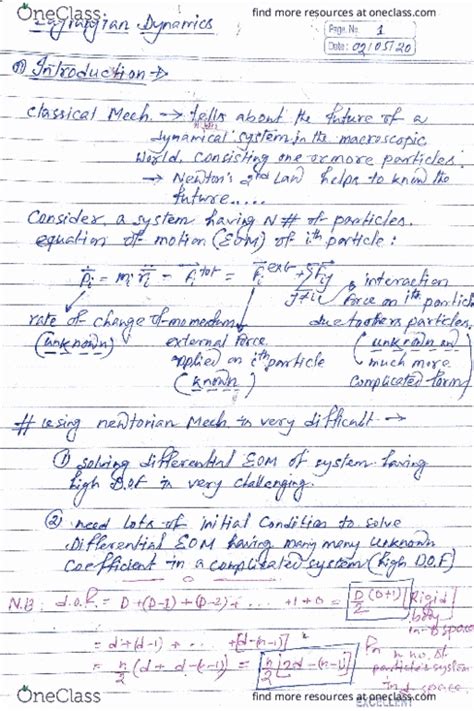 OneClass
find more resources at oneclass.com
Lagrangian Dynamics
Page No. 1
Date: 02/05/20
Introduction →
Classical Mech. → tells about the future of a
dynamical system in the macroscopic
world, consisting one or more particles.
→ Newton's 2nd Law helps to know the
future.....
Consider, a system having N # of particles.
equation of motion (EOM) of ith particle:
interaction
force on ith particle
rate of change of momentum
due to others particles.
(unknown)
external force
applied on ith particle
(unknown and
much more
(known)
complicated form)
# using newtonian Mech. is very difficult →
① solving differential EOM of system having
high D.O.F is very challenging.
② need lots of initial condition to solve
Differential EOM having many many unknown
coefficient in a complicated system (high D.O.F)
N.B: d.o.f. = D+(D-1)+(D-2)+ ... +1+0 = D/2 (D+1)
Rigid
body
in D space
= d+(d-1)+ ... +[d-(n-1)]
= n/2 (d+d-(n-1)) = n/2 [2d-(n-1)]
n no. of
particle's system
in d space
OneClass
EXCELLENT
find more resources at oneclass.com